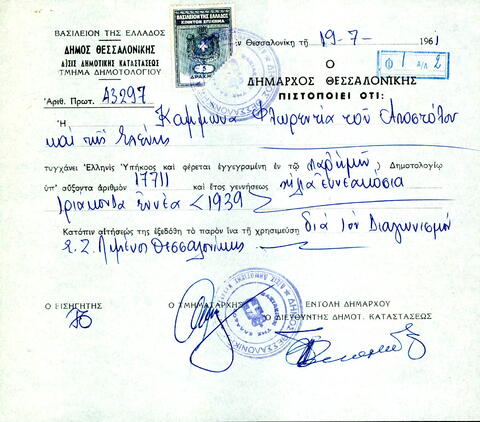 ΒΑΣΙΛΕΙΟΝ ΤΗΣ ΕΛΛΑΔΟΣ
ΔΗΜΟΣ ΘΕΣΣΑΛΟΝΙΚΗΣ
Δ)ΣΙΣ ΔΗΜΟΤΙΚΗΣ ΚΑΤΑΣΤΑΣΕΩΣ
ΤΜΗΜΑ ΔΗΜΟΤΟΛΟΓΙΟΥ
Ἀριθ. Πρωτ. 43297
ΒΑΣΙΛΕΙΟΝ ΤΗΣ ΕΛΛΑΔΟΣ
ΚΙΝΗΤΟΝ ΕΠΙΣΗΜΑ
5
ΔΡΑΧ
Ἐν Θεσσαλονίκῃ τῇ 19-7- 1961
Φ 1 Α/Α 2
Ο
ΔΗΜΑΡΧΟΣ ΘΕΣΣΑΛΟΝΙΚΗΣ
ΠΙΣΤΟΠΟΙΕΙ ΟΤΙ:
Ἡ Καμμώνα Φλωρεντία τοῦ Ἀποστόλου
καὶ τῆς Ἑλένης
τυγχάνει Ἑλληνὶς Ὑπήκοος καὶ φέρεται ἐγγεγραμμένη ἐν τῷ παρ' ἡμῖν Δημοτολογίῳ
ὑπ' αὔξοντα ἀριθμὸν 17711 καὶ ἔτος γεννήσεως χίλια ἐννεακόσια
τριάκοντα ἐννέα <1939>
Κατόπιν αἰτήσεώς της ἐξεδόθη τὸ παρὸν ἵνα τῇ χρησιμεύσῃ διὰ τὸν Διαγωνισμὸν
Ε.Ζ. Λιμένος Θεσσαλονίκης.
Ο ΕΙΣΗΓΗΤΗΣ
Ο ΤΜΗΜΑΤΑΡΧΗΣ
ΕΝΤΟΛΗ ΔΗΜΑΡΧΟΥ
Ο ΔΙΕΥΘΥΝΤΗΣ ΔΗΜΟΤ. ΚΑΤΑΣΤΑΣΕΩΣ